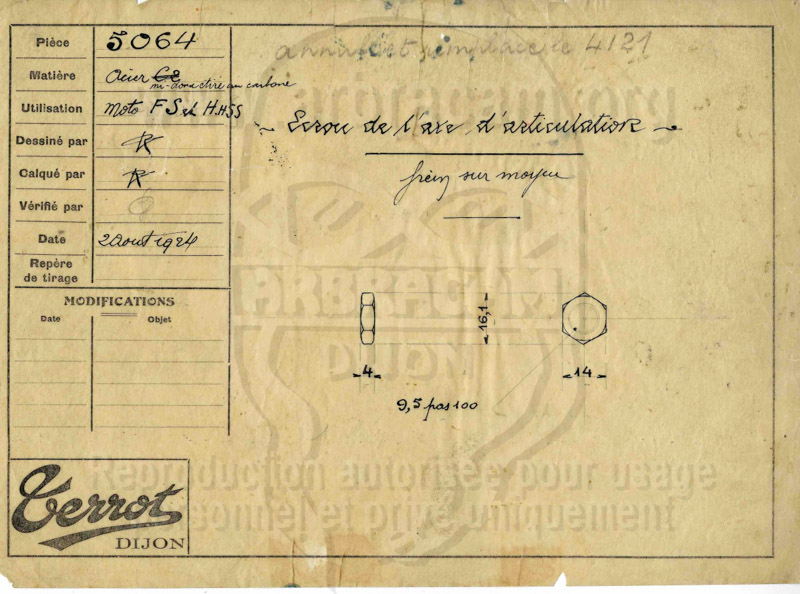 Pièce 5064
annulé et remplacé par le 4121
Matière Acier mi-dur actiré au carbone
Utilisation Moto F S et H.HSS
Ecrou de l'axe d'articulation
Dessiné par R
Calqué par R
frein sur moyeu
Vérifié par
Date 2 Aout 1924
Repère
de tirage
MODIFICATIONS
Date Objet
ARBRACAM
DIJON
16,1
4
14
9,5 pas 100
Reproduction autorisée pour usage
personnel et privé uniquement
Terrot
DIJON